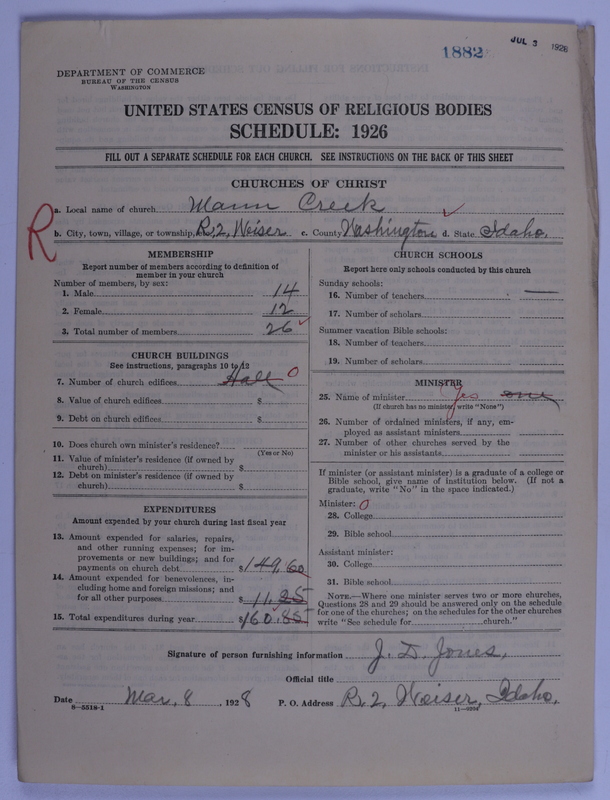 1882
JUL 3 1928
DEPARTMENT OF COMMERCE
BUREAU OF THE CENSUS
WASHINGTON
UNITED STATES CENSUS OF RELIGIOUS BODIES
SCHEDULE: 1926
FILL OUT A SEPARATE SCHEDULE FOR EACH CHURCH. SEE INSTRUCTIONS ON THE BACK OF THIS SHEET
CHURCHES OF CHRIST
R
a. Local name of church Mann Creek
b. City, town, village, or township, etc. R, 2, Weiser c. County Washington d. State Idaho.
MEMBERSHIP
Report number of members according to definition of
member in your church
Number of members, by sex:
1. Male 14
2. Female 12
3. Total number of members 26
CHURCH BUILDINGS
See instructions, paragraphs 10 to 12
7. Number of church edifices Hall 0
8. Value of church edifices $
9. Debt on church edifices $
10. Does church own minister's residence?
(Yes or No)
11. Value of minister's residence (if owned by
church) $
12. Debt on minister's residence (if owned by
church) $
EXPENDITURES
Amount expended by your church during last fiscal year
13. Amount expended for salaries, repairs,
and other running expenses; for im-
provements or new buildings; and for
payments on church debt $149,60
14. Amount expended for benevolences, in-
cluding home and foreign missions; and
for all other purposes $11,25
15. Total expenditures during year $160.85
CHURCH SCHOOLS
Report here only schools conducted by this church
Sunday schools:
16. Number of teachers —
17. Number of scholars
Summer vacation Bible schools:
18. Number of teachers
19. Number of scholars
MINISTER
25. Name of minister Yes one
(If church has no minister, write "None")
26. Number of ordained ministers, if any, em-
ployed as assistant ministers
27. Number of other churches served by the
minister or his assistants
If minister (or assistant minister) is a graduate of a college or
Bible school, give name of institution below. (If not a
graduate, write "No" in the space indicated.)
Minister: 0
28. College
29. Bible school
Assistant minister:
30. College
31. Bible school
NOTE.—Where one minister serves two or more churches,
Questions 28 and 29 should be answered only on the schedule
for one of the churches; on the schedules for the other churches
write "See schedule for church."
Signature of person furnishing information J. D. Jones,
Official title
Date Mar, 8, 1928 P. O. Address R, 2, Weiser, Idaho,
8-5518-1